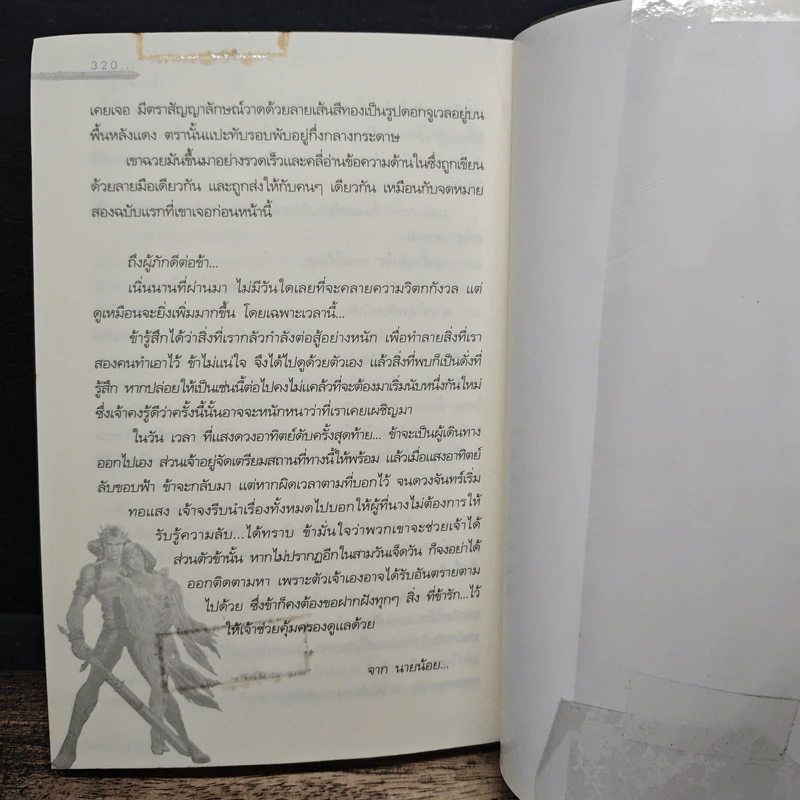 320...
เคยเจอ มีตราสัญญาลักษณ์วาดด้วยลายเส้นสีทองเป็นรูปดอกจูเวลอยู่บน
พื้นหลังแดง ตรานั้นแปะทับรอยพับอยู่กึ่งกลางกระดาษ
เขาฉวยมันขึ้นมาอย่างรวดเร็วและคลี่อ่านข้อความด้านในซึ่งถูกเขียน
ด้วยลายมือเดียวกัน และถูกส่งให้กับคนๆ เดียวกัน เหมือนกับจดหมาย
สองฉบับแรกที่เขาเจอก่อนหน้านี้
ถึงผู้ภักดีต่อข้า...
เนิ่นนานที่ผ่านมา ไม่มีวันใดเลยที่จะคลายความวิตกกังวล แต่
ดูเหมือนจะยิ่งเพิ่มมากขึ้น โดยเฉพาะเวลานี้...
ข้ารู้สึกได้ว่าสิ่งที่เรากลัวกำลังต่อสู้อย่างหนัก เพื่อทำลายสิ่งที่เรา
สองคนทำเอาไว้ ข้าไม่แน่ใจ จึงได้ไปดูด้วยตัวเอง แล้วสิ่งที่พบก็เป็นดั่งที่
รู้สึก หากปล่อยให้เป็นเช่นนี้ต่อไปคงไม่แคล้วที่จะต้องมาเริ่มนับหนึ่งกันใหม่
ซึ่งเจ้าคงรู้ดีว่าครั้งนี้นั้นอาจจะหนักหนาว่าที่เราเคยเผชิญมา
ในวัน เวลา ที่แสงดวงอาทิตย์ดับครั้งสุดท้าย... ข้าจะเป็นผู้เดินทาง
ออกไปเอง ส่วนเจ้าอยู่จัดเตรียมสถานที่ทางนี้ให้พร้อม แล้วเมื่อแสงอาทิตย์
ลับขอบฟ้า ข้าจะกลับมา แต่หากผิดเวลาตามที่บอกไว้ จนดวงจันทร์เริ่ม
ทอแสง เจ้าจงรีบนำเรื่องทั้งหมดไปบอกให้ผู้ที่นางไม่ต้องการให้
รับรู้ความลับ...ได้ทราบ ข้ามั่นใจว่าพวกเขาจะช่วยเจ้าได้
ส่วนตัวข้านั้น หากไม่ปรากฏอีกในสามวันเจ็ดวัน ก็จงอย่าได้
ออกติดตามหา เพราะตัวเจ้าเองอาจได้รับอันตรายตาม
ไปด้วย ซึ่งข้าก็คงต้องขอฝากฝังทุกๆ สิ่ง ที่ข้ารัก...ไว้
ให้เจ้าช่วยคุ้มครองดูแลด้วย
จาก นายน้อย...